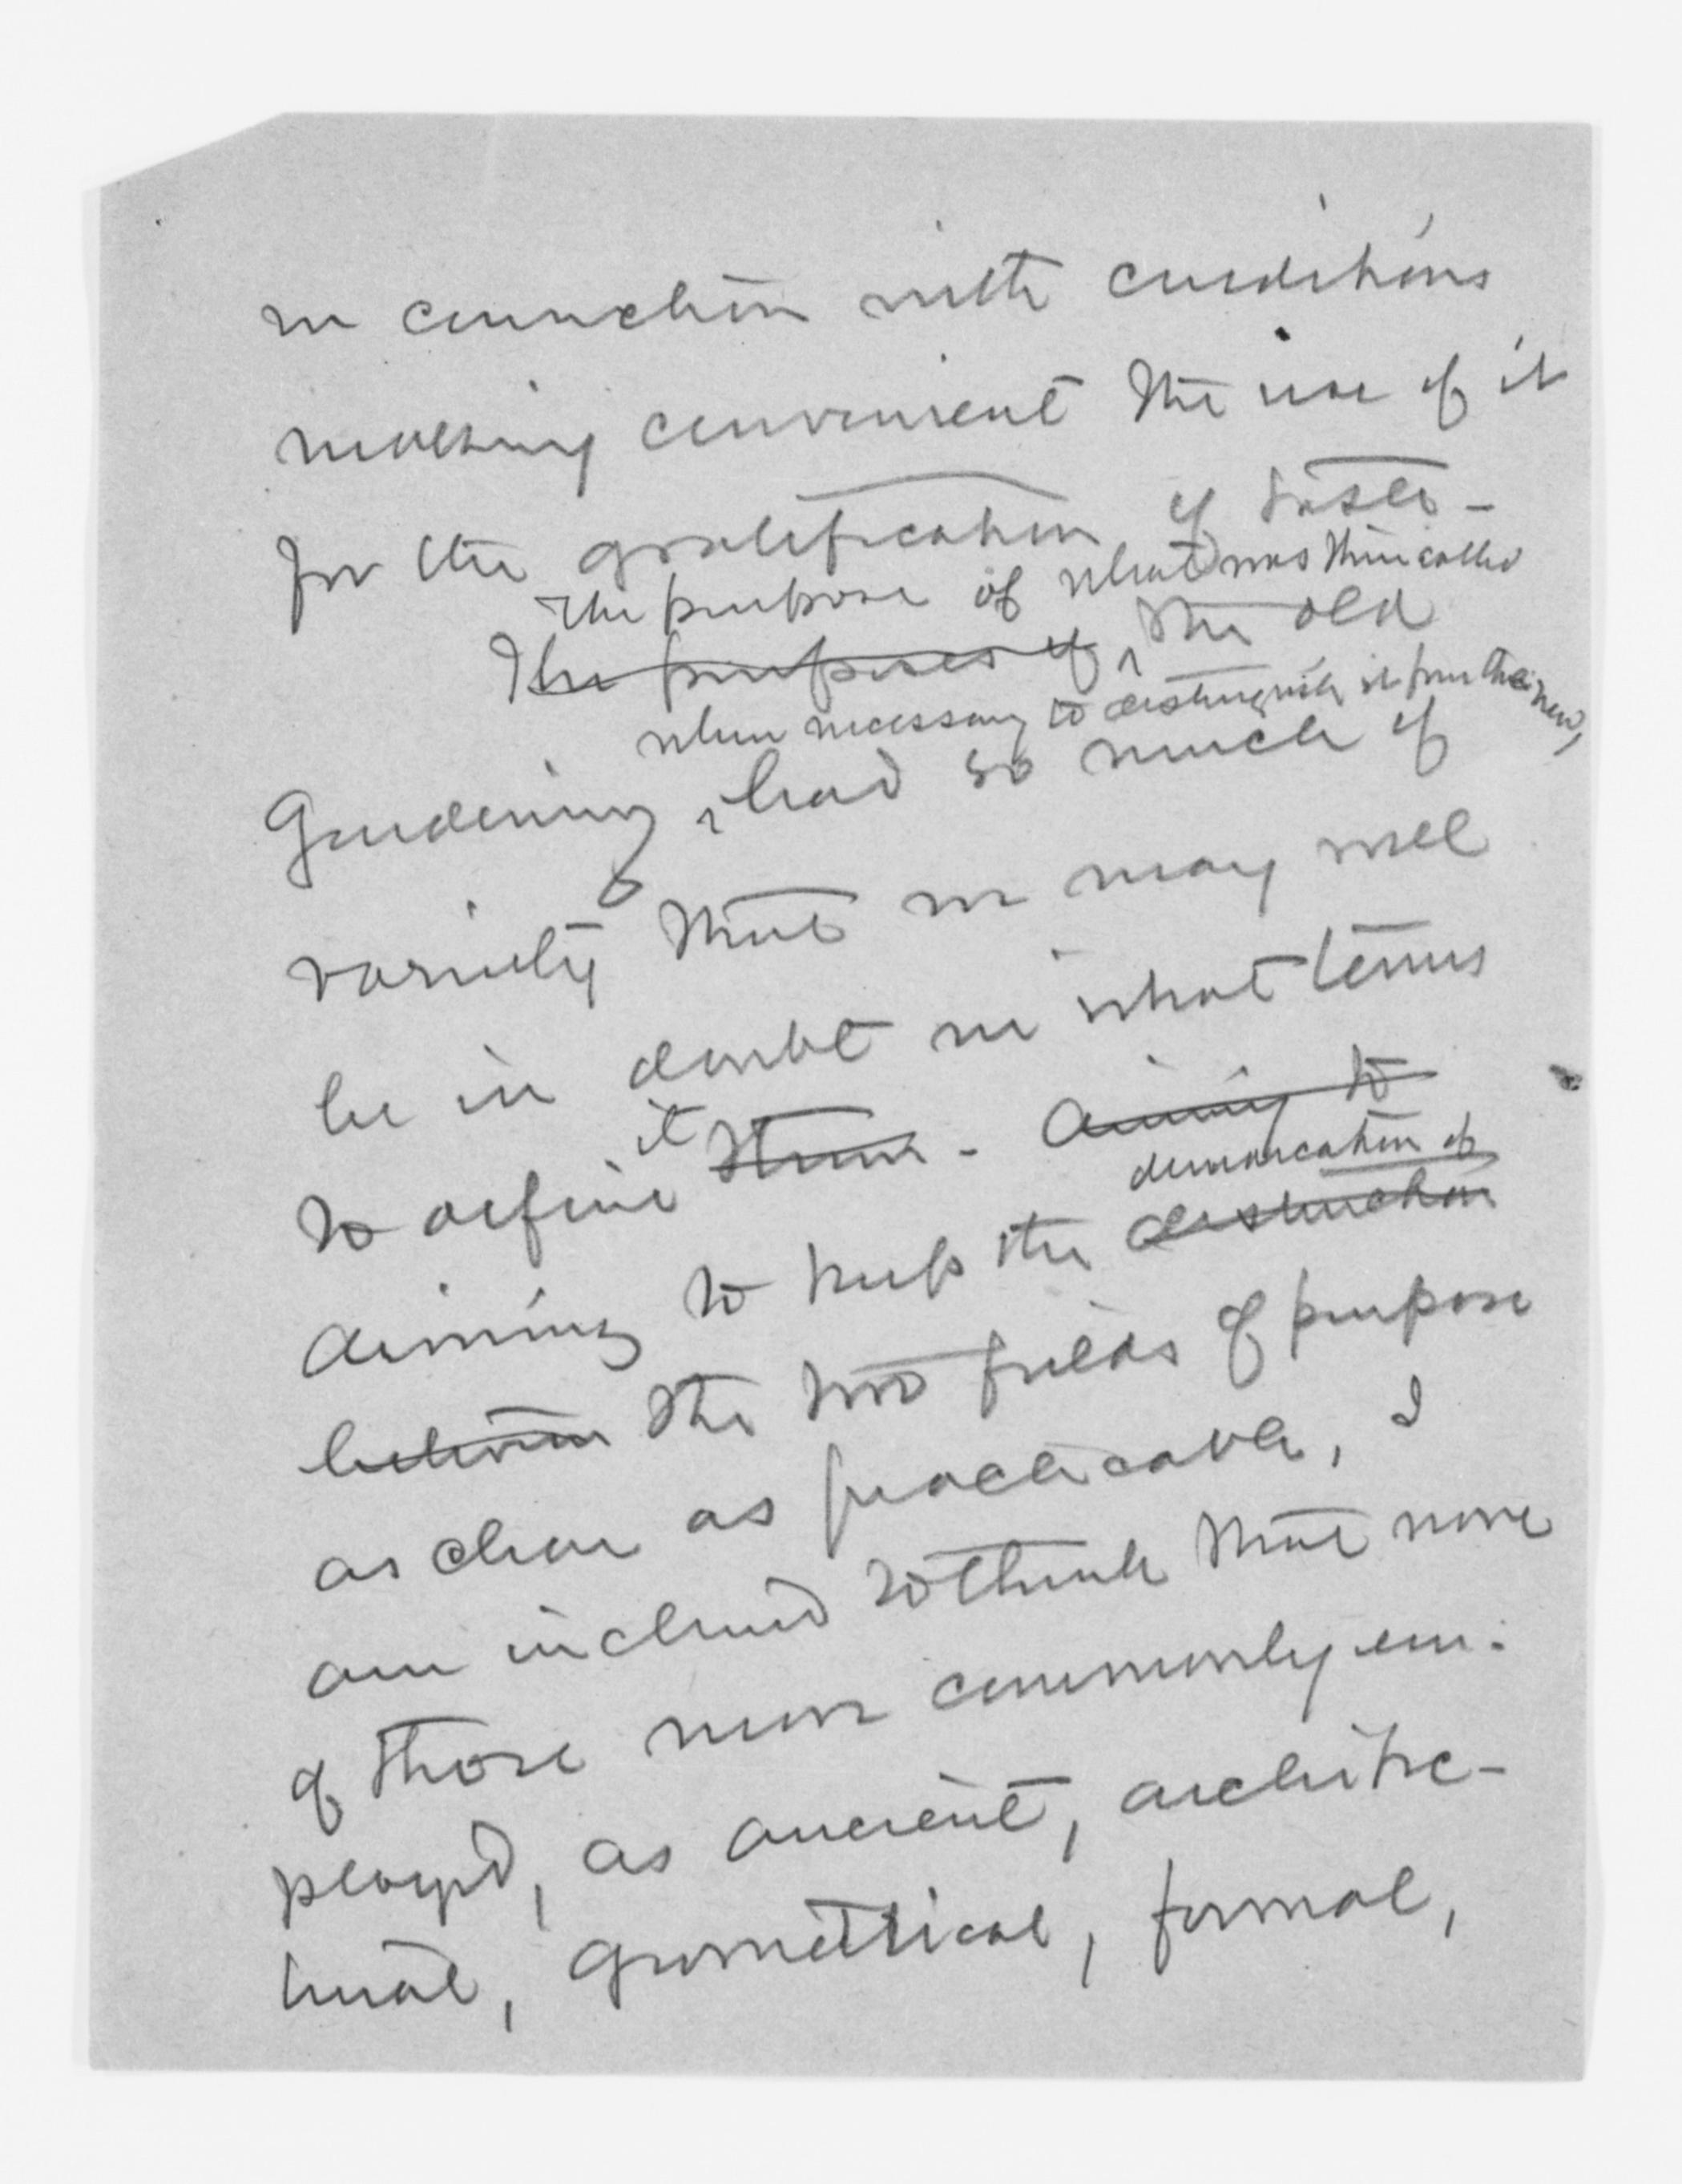 in connection with conditions
making convenient the use of it
for the gratification of taste -
The purpose of what was then called
The purposes of the old
when necessary to distinguish it from the new,
Gardening, had so much of
variety that we may well
be in doubt in what terms
it
to define them - Aiming to
demarcation of
aiming to keep the distinction
between the two fields of purpose
as clear as practicable, I
am inclined to think that none
of those more commonly em-
ployed, as ancient, architec-
tural, geometrical, formal,